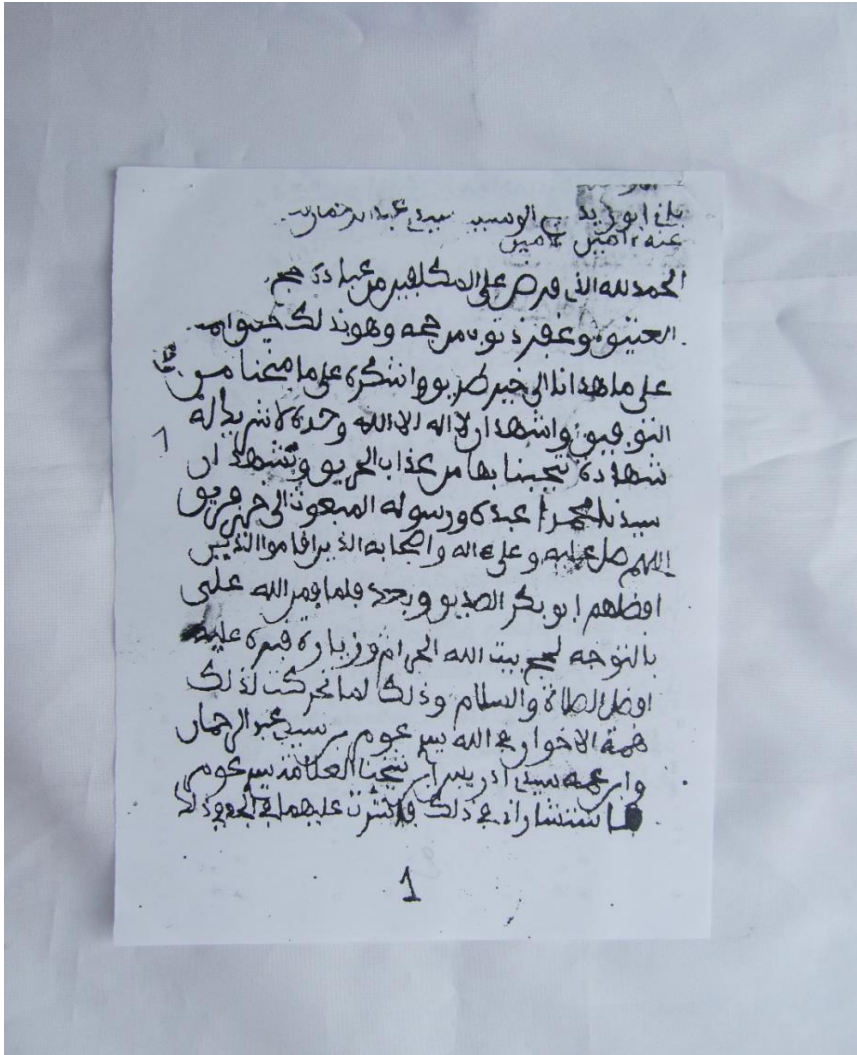 ابو زيد سيدي عبد الرحمان
عنه ءامين ءامين
الحمد لله الذي فرض على المكلفين من عباده حج
العتيق وغفر ذنوب من حجه وهو بذلك
على ما هدانا الى خير طريق واشكره على ما منحنا من
التوفيق واشهد ان لا اله الا الله وحده لا شريك له
شهادة تنجينا بها من عذاب الحريق ونشهد ان
سيدنا محمدا عبده ورسوله المبعوث الى خير فريق
اللهم صل عليه وعلى ءاله واصحابه الذين اقاموا الدين
افضلهم ابو بكر الصديق وبعد فلما من الله علي
بالتوجه لحج بيت الله الحرام وزيارة قبره عليه
افضل الصلاة والسلام وذلك لما تحركت لذلك
همة الاخوان في الله سيدي عبد الرحمان
وابن عمه سيدي ادريس ابن شيخنا العلامة
فاستشاراني في ذلك فاشرت عليهما
1